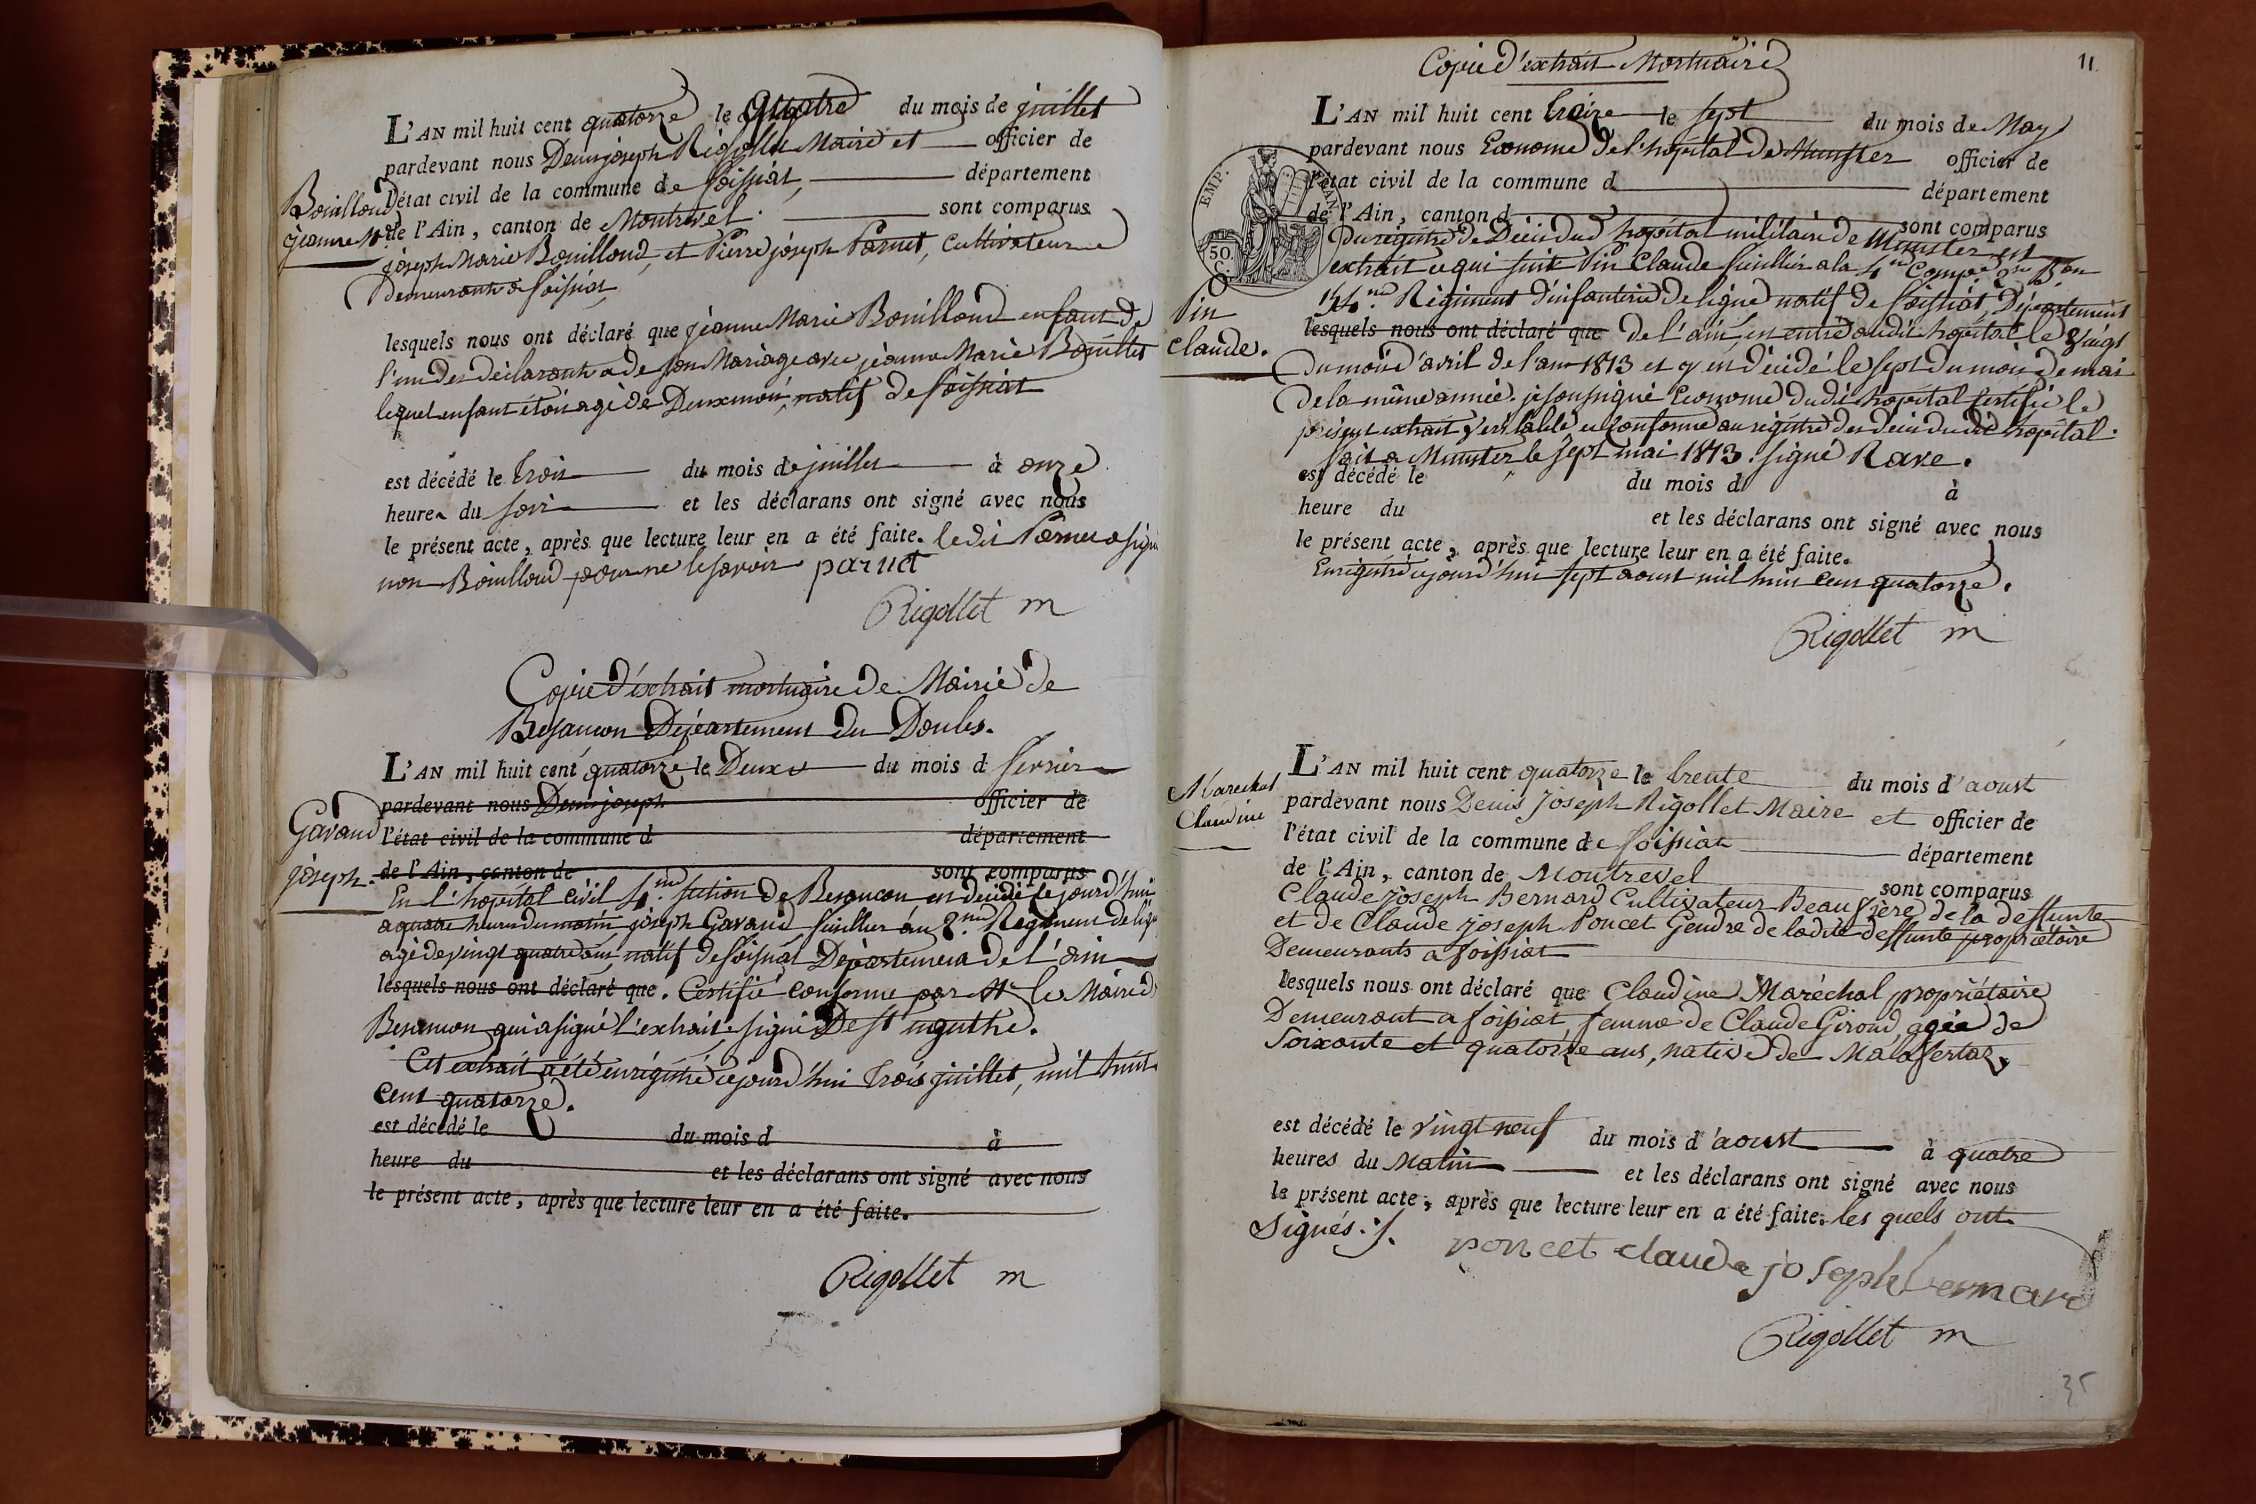 L'AN mil huit cent quatorze le quatre du mois de juillet
pardevant nous Denis joseph Rigollet Maire et officier de
l'état civil de la commune de foissiat, département
de l'Ain, canton de Montrevel. sont comparus
Bouilloud
jeanne Mie
joseph Marie Bouilloud, et Pierre joseph Parnet, Cultivateurs
Demeurants a foissiat
lesquels nous ont déclaré que jeanne Marie Bouilloud enfant de
l'un des déclarants a de son Mariage avec jeanne Marie Bouillet
lequel enfant étoit agé de Deux mois, natif de foissiat
est décédé le trois du mois de juillet à onze
heures du soir et les déclarans ont signé avec nous
le présent acte, après que lecture leur en a été faite. ledit Parnet a signé
non Bouilloud pour ne le savoir parnet
Rigollet m
Copie d'éxtrait mortuaire de Mairie de
Besancon Département du Doubs.
L'AN mil huit cent quatorze le Deux du mois d fevrier
pardevant nous Denis joseph officier de
l'état civil de la commune d département
de l'Ain, canton de sont comparus
Gavand
joseph.
En l'hopital civil 4.me section de Besancon est décidé le jourd'hui
a quatre heures du matin joseph Gavand fusillier au 8.me Regiment de lig
agé de vingt quatre ans, natif de foissiat Département de l'ain
lesquels nous ont déclaré que. Certifié conforme par Mr le Maire de
Besancon qui a signé l'extrait. signé De St agathe.
Cet extrait a été enrégitré cejourd'hui trois juillet, mil huit
cent quatorze.
est décédé le du mois d à
heure du et les déclarans ont signé avec nous
le présent acte, après que lecture leur en a été faite.
Rigollet m
11
Copie d'extrait Mortuaire
L'AN mil huit cent treize le sept du mois de May
pardevant nous Econome de l'hopital de Munster officier de
l'état civil de la commune d département
de l'Ain, canton d sont comparus
EMP.
50.
C.
Pin
claude.
Du régitre de Décès dud hopital militaire de Munster est
extrait ce qui suit Pin Claude fusillier a la 4me Compie 2me Bon
me Régiment d'infanterie de ligne natif de foissiat Département
lesquels nous ont déclaré que de l'ain, est entré audit hopital le vingt
du mois d'avril de l'an 1813 et y est décidé le sept du mois de mai
de la même année. je soussigné Econome dudit hopital certifie le
présent extrait véritable et conforme au régitre des décès dudit hopital.
fait a Munster le sept mai 1813. signé Raxe.
est décédé le du mois d à
heure du et les déclarans ont signé avec nous
le présent acte, après que lecture leur en a été faite.
Enrégitré cejourd'hui sept aoust mil huit cent quatorze.
Rigollet m
L'AN mil huit cent quatorze le trente du mois d'aoust
pardevant nous Denis Joseph Rigollet Maire et officier de
l'état civil de la commune de foissiat département
de l'Ain, canton de Montrevel sont comparus
Marechal
Claudine
Claude joseph Bernard Cultivateur Beau frère de la deffunte
et de Claude joseph Poncet Gendre de ladite deffunte propriétaire
Demeurants a foissiat
lesquels nous ont déclaré que Claudine Maréchal propriétaire
Demeurant a foissiat femme de Claude Giroud, agée de
Soixante et quatorze ans, native de Malafertaz,
est décédé le vingt neuf du mois d'aoust à quatre
heures du Matin et les déclarans ont signé avec nous
le présent acte, après que lecture leur en a été faite. les quels ont
Signés./.
poncet claude joseph bernard
Rigollet m
35